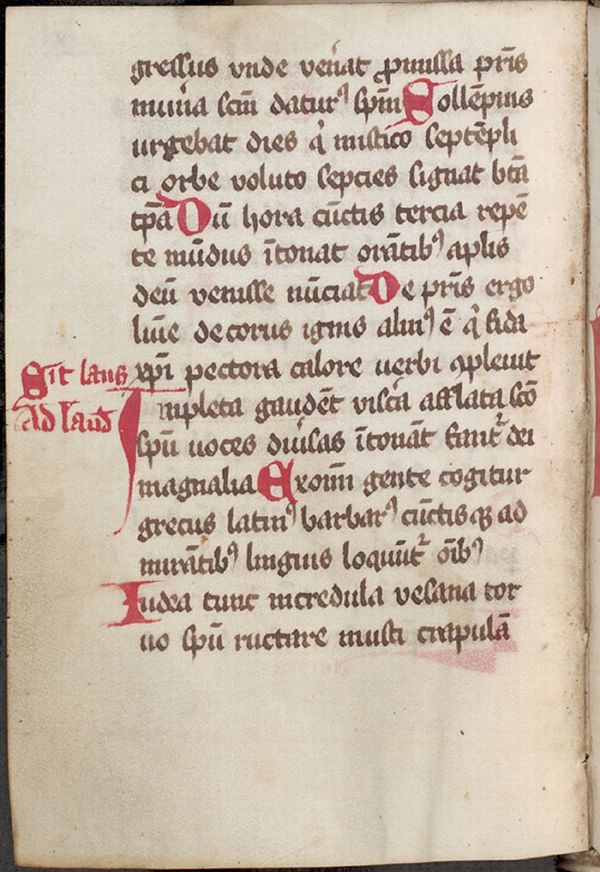 gressus vnde ven̉at ꝓmissa pr̄is
mun̉a scm̄ datur᾽ spm̄ Sollēpnis
urgebat dies q̇ mistico septēpli
ci orbe voluto sepcies signat btā
tpa̅ Dū hora cūctis tercia repē
te mūdus ītonat orātib᾽ aplis
deū venisse nūciat De pr̄is ergo
lumē decorus ignis alm᾽ ē q̇ fida
Sit laus xp̄i pectora calore uerbi ꝯpleuit
Ad laud̄ Impleta gaudēt visc̉a afflata scō
spū uoces diu̓sas ītonāt fant᷑ dei
magnalia Ex oīm gente cogitur
grecus latin᾽ barbar᾽ cūctisqꝫ ad
mirātib᾽ linguis loqūnt᷑ oīb᾽
Iudea tunc incredula vesana tor
uo spū ructare musti crapulā